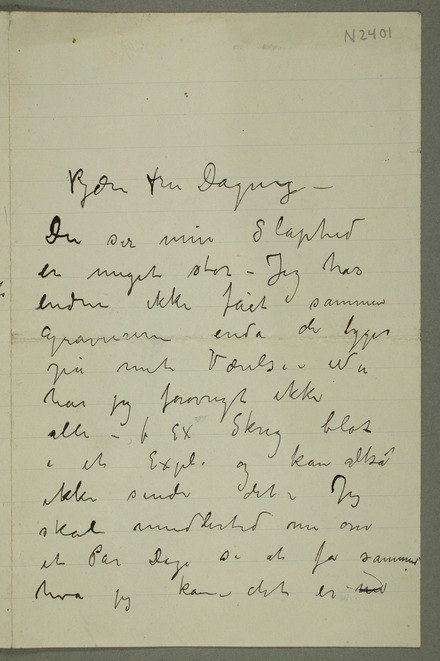 N2401
Kjære Fru Dagny –
Du ser min Slaphed
er meget stor – Jeg har
endnu ikke fået sammen
gravurerne enda de ligger
på mit Værelse
har jeg forøvrigt ikke
alle – f Ex Skrig blot
i et Expl. og kan altså
ikke sende det – Jeg
skal imidlertid nu om
et Par Dage se at få sammen
hva jeg kan – det er